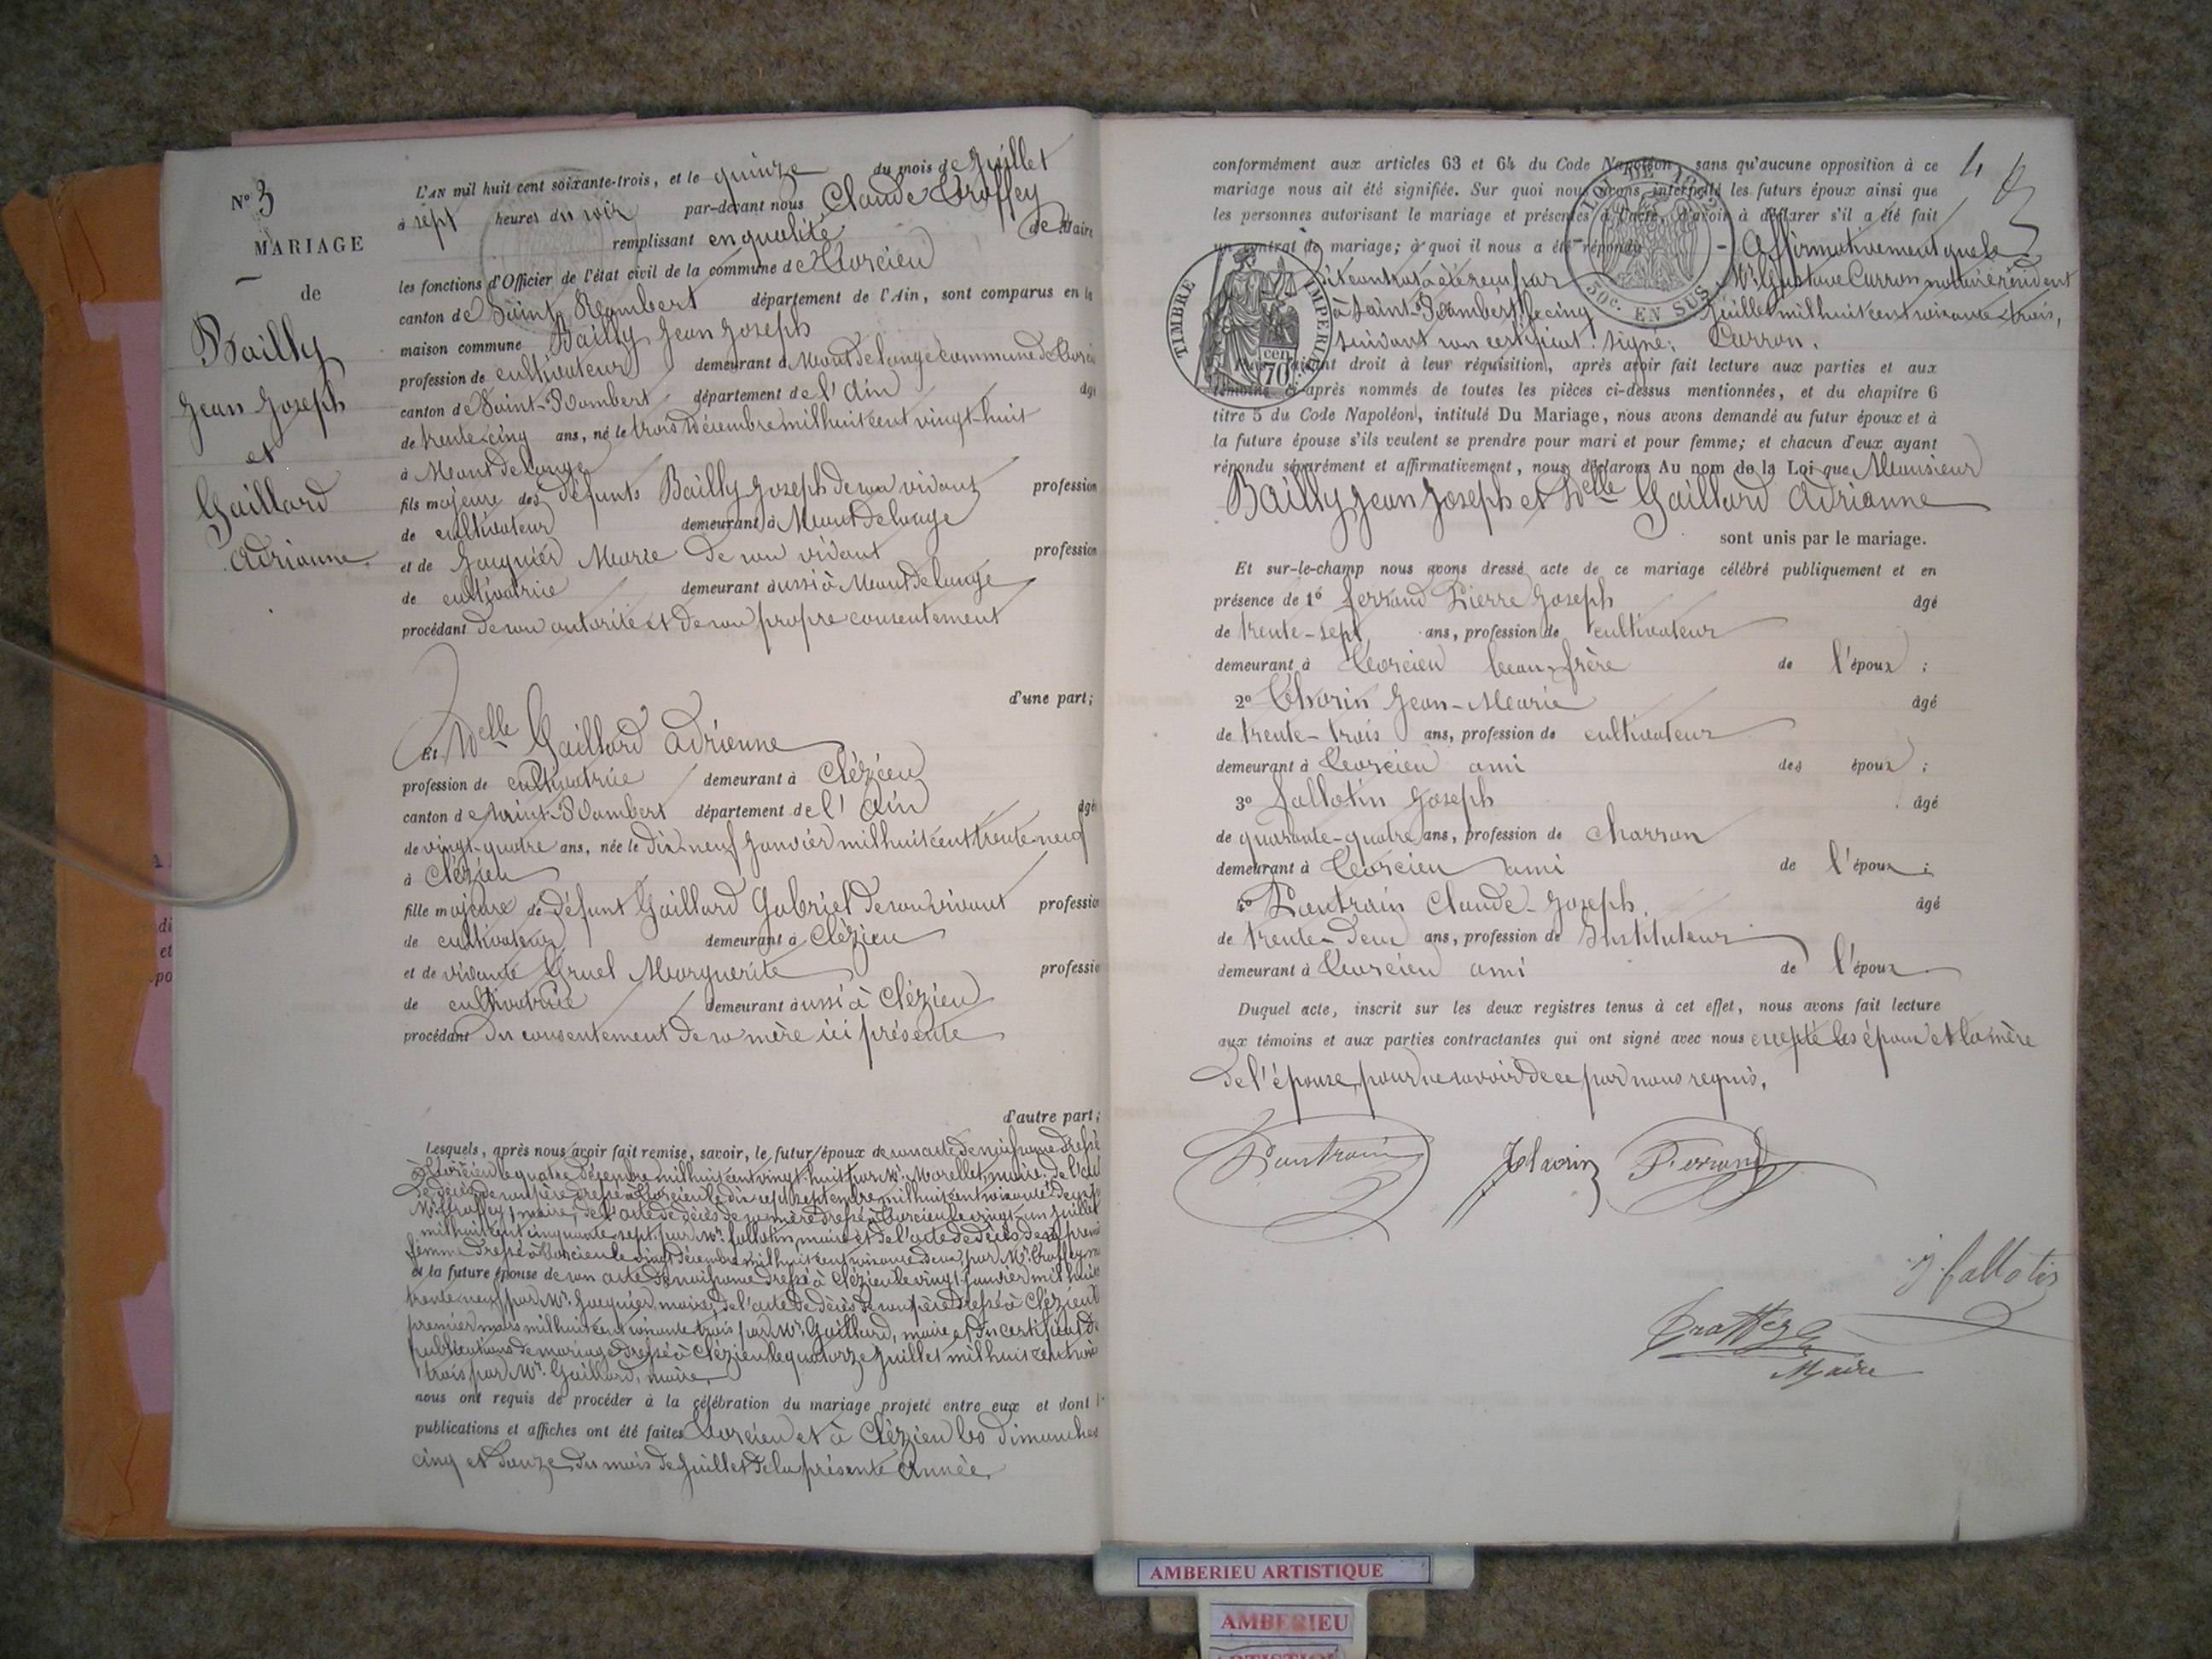 N° 3
MARIAGE
de
Bailly
Jean Joseph
et
Gaillard
Adrianne.
L'AN mil huit cent soixante-trois, et le quinze du mois de Juillet
à sept heures du soir par-devant nous Claude Troffey
remplissant en qualité de Maire
les fonctions d'Officier de l'état civil de la commune de Torcieu
canton de Saint-Rambert département de l'Ain, sont comparus en la
maison commune Bailly Jean Joseph
profession de cultivateur demeurant à Montdelange commune de Torcieu
canton de Saint-Rambert département de l'Ain âgé
de trente-cinq ans, né le trois Décembre mil huit cent vingt-huit
à Montdelange
fils majeure des défunts Bailly Joseph de son vivant profession
de cultivateur demeurant à Montdelange
et de Jacquier Marie de son vivant profession
de cultivatrice demeurant aussi à Montdelange
procédant de son autorité et de son propre consentement
d'une part;
Et Delle Gaillard Adrienne
profession de cultivatrice demeurant à Clézieu
canton de Saint-Rambert département de l'Ain âgée
de vingt-quatre ans, née le dix-neuf Janvier mil huit cent trente-neuf
à Clézieu
fille majeure de défunt Gaillard Gabriel de son vivant profession
de cultivateur demeurant à Clézieu
et de vivante Gruel Marguerite profession
de cultivatrice demeurant aussi à Clézieu
procédant du consentement de sa mère ici présente
d'autre part;
Lesquels, après nous avoir fait remise, savoir, le futur époux de son acte de naissance dressé
à Torcieu le quatre Décembre mil huit cent vingt-huit par Mr. Morellet, maire, de l'acte
de décès de son père dressé à Torcieu le dix sept septembre mil huit cent soixante deux par
Mr. Troffey, maire, de l'acte de décès de sa mère dressé à Torcieu le vingt-un juillet
mil huit cent cinquante sept, par Mr. Fallotin, maire et de l'acte de décès de sa première
femme dressé à Torcieu le vingt décembre mil huit cent soixante deux, par Mr. Troffey
et la future épouse de son acte de naissance dressé à Clézieu le vingt janvier mil huit
trente neuf par Mr. Jacquier, maire, de l'acte de décès de son père dressé à Clézieu le
premier mars mil huit cent soixante trois par Mr. Gaillard, maire et du certificat de
publications de mariage dressé à Clézieu le quatorze Juillet mil huit cent soixante
trois par Mr. Gaillard, maire.
nous ont requis de procéder à la célébration du mariage projeté entre eux et dont les
publications et affiches ont été faites Torcieu et à Clézieu les dimanches
cinq et douze du mois de Juillet de la présente année.
4
conformément aux articles 63 et 64 du Code Napoléon, sans qu'aucune opposition à ce
mariage nous ait été signifiée. Sur quoi nous avons interpellé les futurs époux ainsi que
les personnes autorisant le mariage et présentes à l'acte, d'avoir à déclarer s'il a été fait
un contrat de mariage; à quoi il nous a été répondu affirmativement que le
dit contrat a été reçu par Mr. Gustave Carron notaire résident
à Saint-Rambert le cinq Juillet mil huit cent soixante-trois,
suivant son certificat. Signé: Carron.
TIMBRE IMPERIAL
70 cen
50c. EN SUS
faisant droit à leur réquisition, après avoir fait lecture aux parties et aux
témoins ci-après nommés de toutes les pièces ci-dessus mentionnées, et du chapitre 6
titre 5 du Code Napoléon, intitulé Du Mariage, nous avons demandé au futur époux et à
la future épouse s'ils veulent se prendre pour mari et pour femme; et chacun d'eux ayant
répondu séparément et affirmativement, nous déclarons Au nom de la Loi que Monsieur
Bailly Jean Joseph et Delle Gaillard Adrianne
sont unis par le mariage.
Et sur-le-champ nous avons dressé acte de ce mariage célébré publiquement et en
présence de 1° Ferrand Pierre Joseph âgé
de trente-sept ans, profession de cultivateur
demeurant à Torcieu beau-frère de l'époux;
2° Thorin Jean-Marie âgé
de trente-trois ans, profession de cultivateur
demeurant à Torcieu ami des époux;
3° Fallotin Joseph âgé
de quarante-quatre ans, profession de charron
demeurant à Torcieu ami de l'époux;
4° Pantrain Claude-Joseph âgé
de trente-deux ans, profession de Instituteur
demeurant à Torcieu ami de l'époux
Duquel acte, inscrit sur les deux registres tenus à cet effet, nous avons fait lecture
aux témoins et aux parties contractantes qui ont signé avec nous excepté les époux et la mère
de l'épouse, pour ne savoir de ce par nous requis.
Pantrain Thorin P. Ferrand
J. Fallotin
Troffey
Maire
AMBERIEU ARTISTIQUE
AMBERIEU
ARTISTIQUE